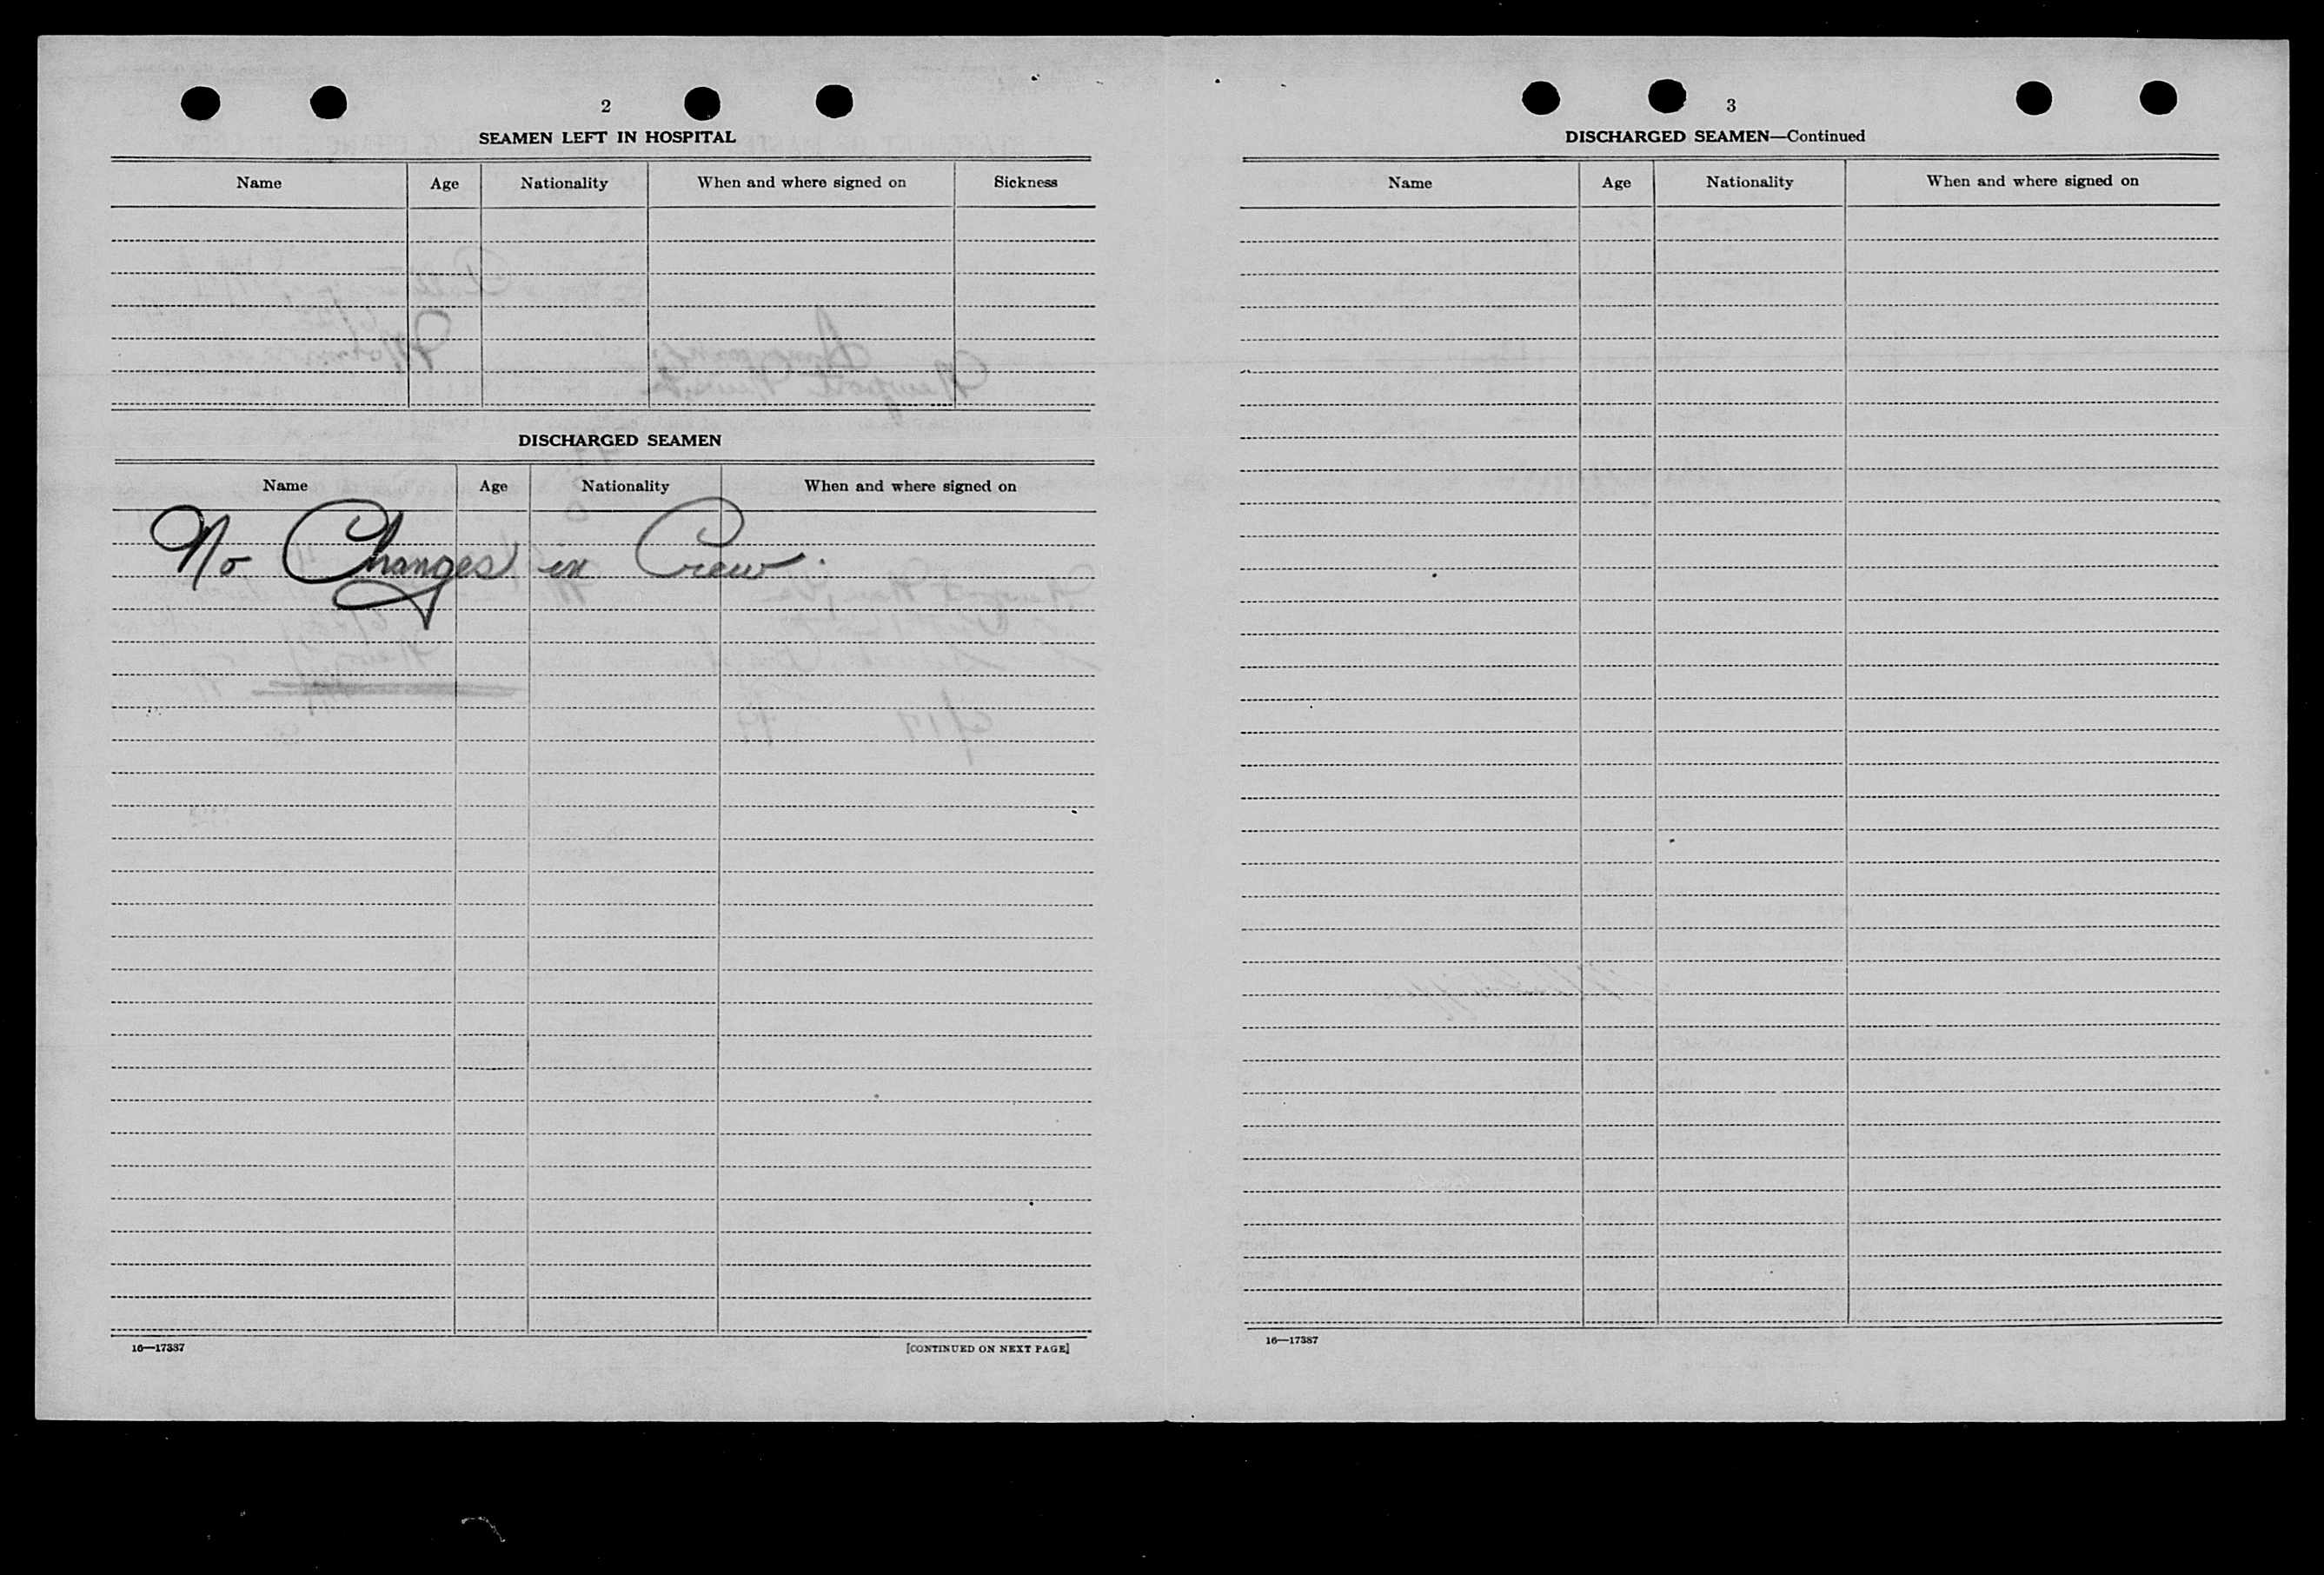 2
SEAMEN LEFT IN HOSPITAL
Name Age Nationality When and where signed on Sickness
DISCHARGED SEAMEN
Name Age Nationality When and where signed on
No Changes in Crew.
16—17387
[CONTINUED ON NEXT PAGE]
3
DISCHARGED SEAMEN—Continued
Name Age Nationality When and where signed on
16—17387